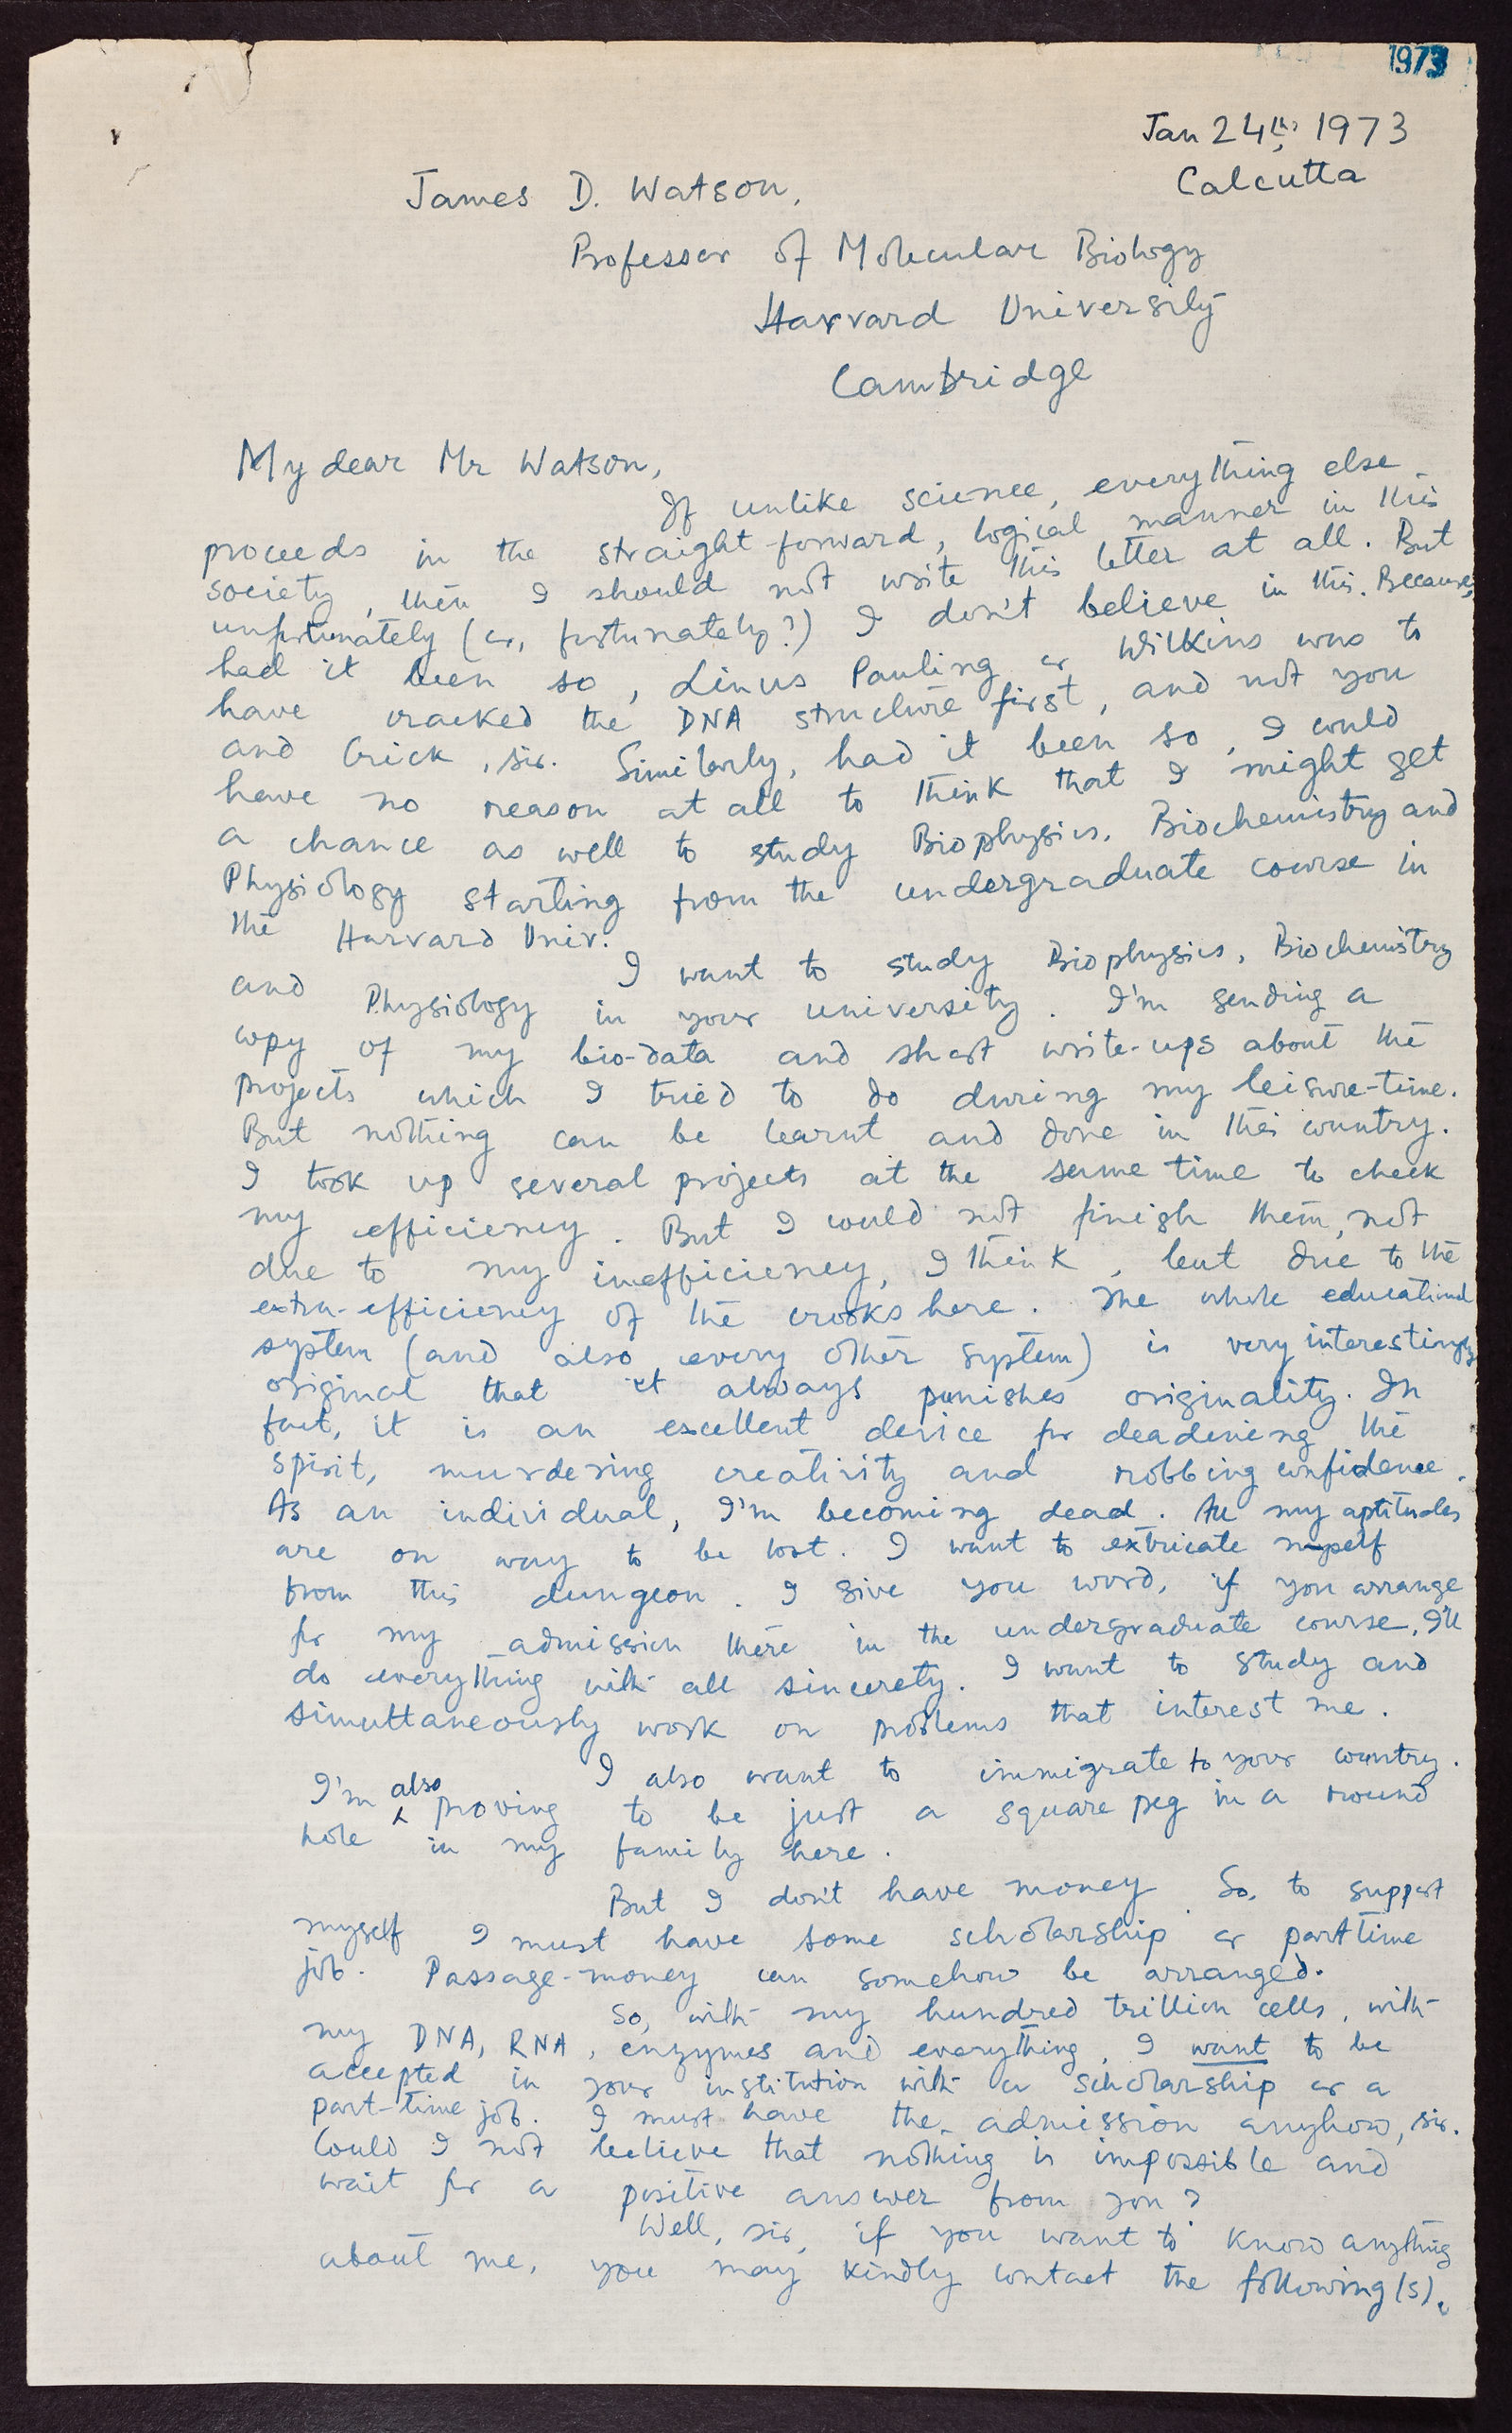 1973
Jan 24th, 1973
Calcutta
James D. Watson,
Professor of Molecular Biology
Harvard University
Cambridge
My dear Mr Watson,
If unlike science, everything else
proceeds in the straight-forward, logical manner in this
society, then I should not write this letter at all. But
unfortunately (or, fortunately?) I don't believe in this. Because,
had it been so, Linus Pauling or Wilkins was to
have cracked the DNA structure first, and not you
and Crick, sir. Similarly, had it been so, I could
have no reason at all to think that I might get
a chance as well to study Biophysics, Biochemistry and
Physiology starting from the undergraduate course in
the Harvard Univ.
I want to study Biophysics, Biochemistry
and Physiology in your university. I'm sending a
copy of my bio-data and short write-ups about the
projects which I tried to do during my leisure-time.
But nothing can be learnt and done in this country.
I took up several projects at the same time to check
my efficiency. But I could not finish them, not
due to my inefficiency, I think, but due to the
extra-efficiency of the crooks here. The whole educational
system (and also every other system) is very interestingly
original that it always punishes originality. In
fact, it is an excellent device for deadening the
spirit, murdering creativity and robbing confidence.
As an individual, I'm becoming dead. All my aptitudes
are on way to be lost. I want to extricate myself
from this dungeon. I give you word, if you arrange
for my admission there in the undergraduate course, I'll
do everything with all sincerety. I want to study and
simultaneously work on problems that interest me.
I also want to immigrate to your country.
I'm also proving to be just a square peg in a round
hole in my family here.
But I don't have money. So, to support
myself I must have some scholarship or parttime
job. Passage-money can somehow be arranged.
So, with my hundred trillion cells, with
my DNA, RNA, enzymes and everything, I want to be
accepted in your institution with a scholarship or a
part-time job. I must have the admission anyhow, sir.
Could I not believe that nothing is impossible and
wait for a positive answer from you?
Well, sir, if you want to know anything
about me, you may kindly contact the following(s).